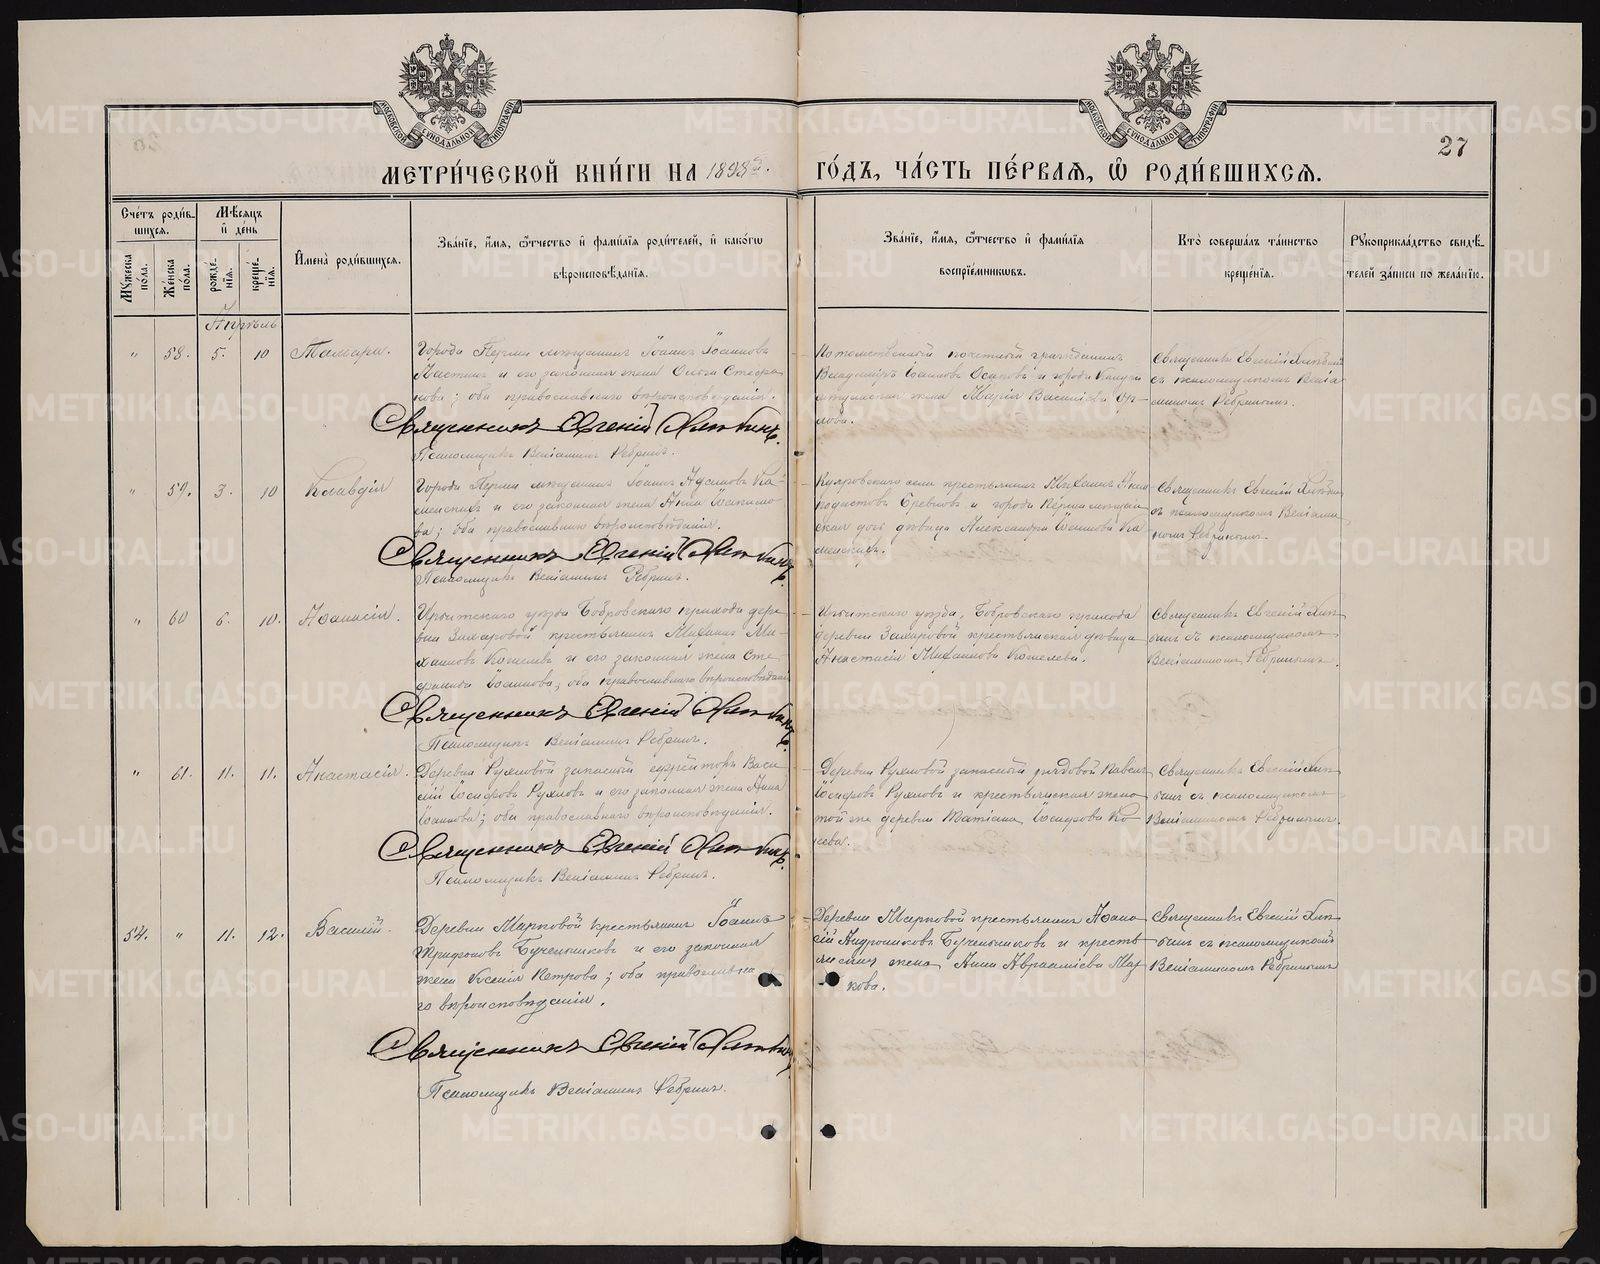 МОСКОВСКОЙ СѴНОДАЛЬНОЙ ТИПОГРАФІИ
МОСКОВСКОЙ СѴНОДАЛЬНОЙ ТИПОГРАФІИ
27
МЕТРИ́ЧЕСКОЙ КНИ́ГИ НА 1898й. ГО́ДЪ, ЧА́СТЬ ПЕ́РВАЯ, Ѡ РОДИ́ВШИХСЯ.
Сче́тъ роди́в-
шихся.
Мꙋжеска по́ла.
Же́нска по́ла.
Мѣ́сяцъ и де́нь
рожде́-нія.
креще́-нія.
Имена̀ роди́вшихся.
Зва́нїе, и́мя, ѻ҆́тчество и҆ фами́лїя роди́телей, и҆ како́гѡ
вѣроисповѣ́данїя.
Зва́нїе, и́мя, ѻ҆́тчество и҆ фами́лїя
воспрїе́мниковъ.
Кто̀ соверша́лъ та́инство
креще́нїя.
Рꙋкоприкла́дство свидѣ́-
телей за́писи по жела́нїю.
Апрѣль
" 58. 5. 10 Тамара.
Города Перми мѣщанинъ Іоаннъ Іоанновъ
и его законная жена Ольга Стефа-
нова; оба православнаго вѣроисповѣданія.
Священникъ Евгеній Хлѣбинъ.
Псаломщикъ Веніаминъ Ребринъ.
Потомственный почетный гражданинъ
Владиміръ Іоанновъ Осиповъ и города
жена Марія Васильева
лова.
Священникъ Евгеній Хлѣбинъ
съ псаломщикомъ Веніа-
миномъ Ребринымъ.
" 59. 3. 10 Клавдія
Города Перми мѣщанинъ Іоаннъ Ка-
менскихъ и его законная жена Анна
ва; оба православнаго вѣроисповѣданія.
Священникъ Евгеній Хлѣбинъ.
Псаломщикъ Веніаминъ Ребринъ.
села крестьянинъ Михаилъ
и города Перми мѣщан-
ская дочь дѣвица Александра Іоаннова Ка-
менскихъ.
Священникъ Евгеній Хлѣбин
съ псаломщикомъ Веніами-
номъ Ребринымъ
" 60 6. 10. Аѳанасія.
Ирбитскаго уѣзда Бобровскаго прихода дере-
вни Захаровой крестьянинъ Михаилъ Ми-
хаиловъ Кошелевъ и его законная жена Сте-
фанида Іоаннова; оба православнаго вѣроисповѣданія
Священникъ Евгеній Хлѣбинъ.
Псаломщикъ Веніаминъ Ребринъ.
Ирбитскаго уѣзда, Бобровскаго прихода
деревни Захаровой крестьянская дѣвица
Анастасія Михаилова Кошелева.
Священникъ Евгеній Хлѣ-
бинъ съ псаломщикомъ
Веніаминомъ Ребринымъ.
" 61. 11. 11. Анастасія.
Деревни Рухловой запасный ефрейторъ Васи-
лій Іосифовъ Рухловъ и его законная жена Анна
Іоаннова; оба православнаго вѣроисповѣданія.
Священникъ Евгеній Хлѣбинъ.
Псаломщикъ Веніаминъ Ребринъ.
Деревни Рухловой запасный рядовой Павелъ
Іосифовъ Рухловъ и крестьянская жена
той же деревни Татіана Іосифова Ко-
Священникъ Евгеній Хлѣ-
бинъ съ псаломщикомъ
Веніаминомъ Ребринымъ.
54. " 11. 12. Василій.
Деревни Марковой крестьянинъ Іоаннъ
Трифоновъ Бученьниковъ и его законная
жена Ксенія Петрова; оба православна-
го вѣроисповѣданія.
Священникъ Евгеній Хлѣбинъ
Псаломщикъ Веніаминъ Ребринъ.
Деревни Марковой крестьянинъ Аѳана-
сій Андрониковъ Бученьниковъ и кресть-
янская жена Анна Авраамiева Мар-
кова.
Священникъ Евгеній Хлѣ-
бинъ съ псаломщикомъ
Веніаминомъ Ребринымъ
METRIKI.GASO-URAL.RU